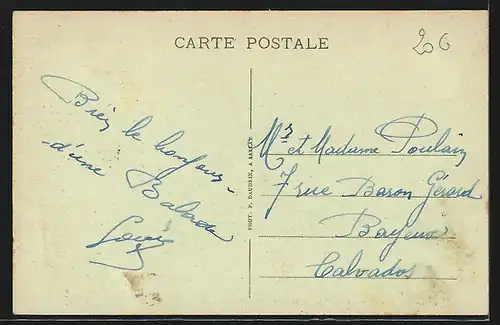 CARTE POSTALE
206
Bien le bonjour
d'une Balade
Louis
Mr et Madame Poulain
7 rue Baron Gérard
Bayeux
Calvados
PHOT. P. BAUDRIX, A